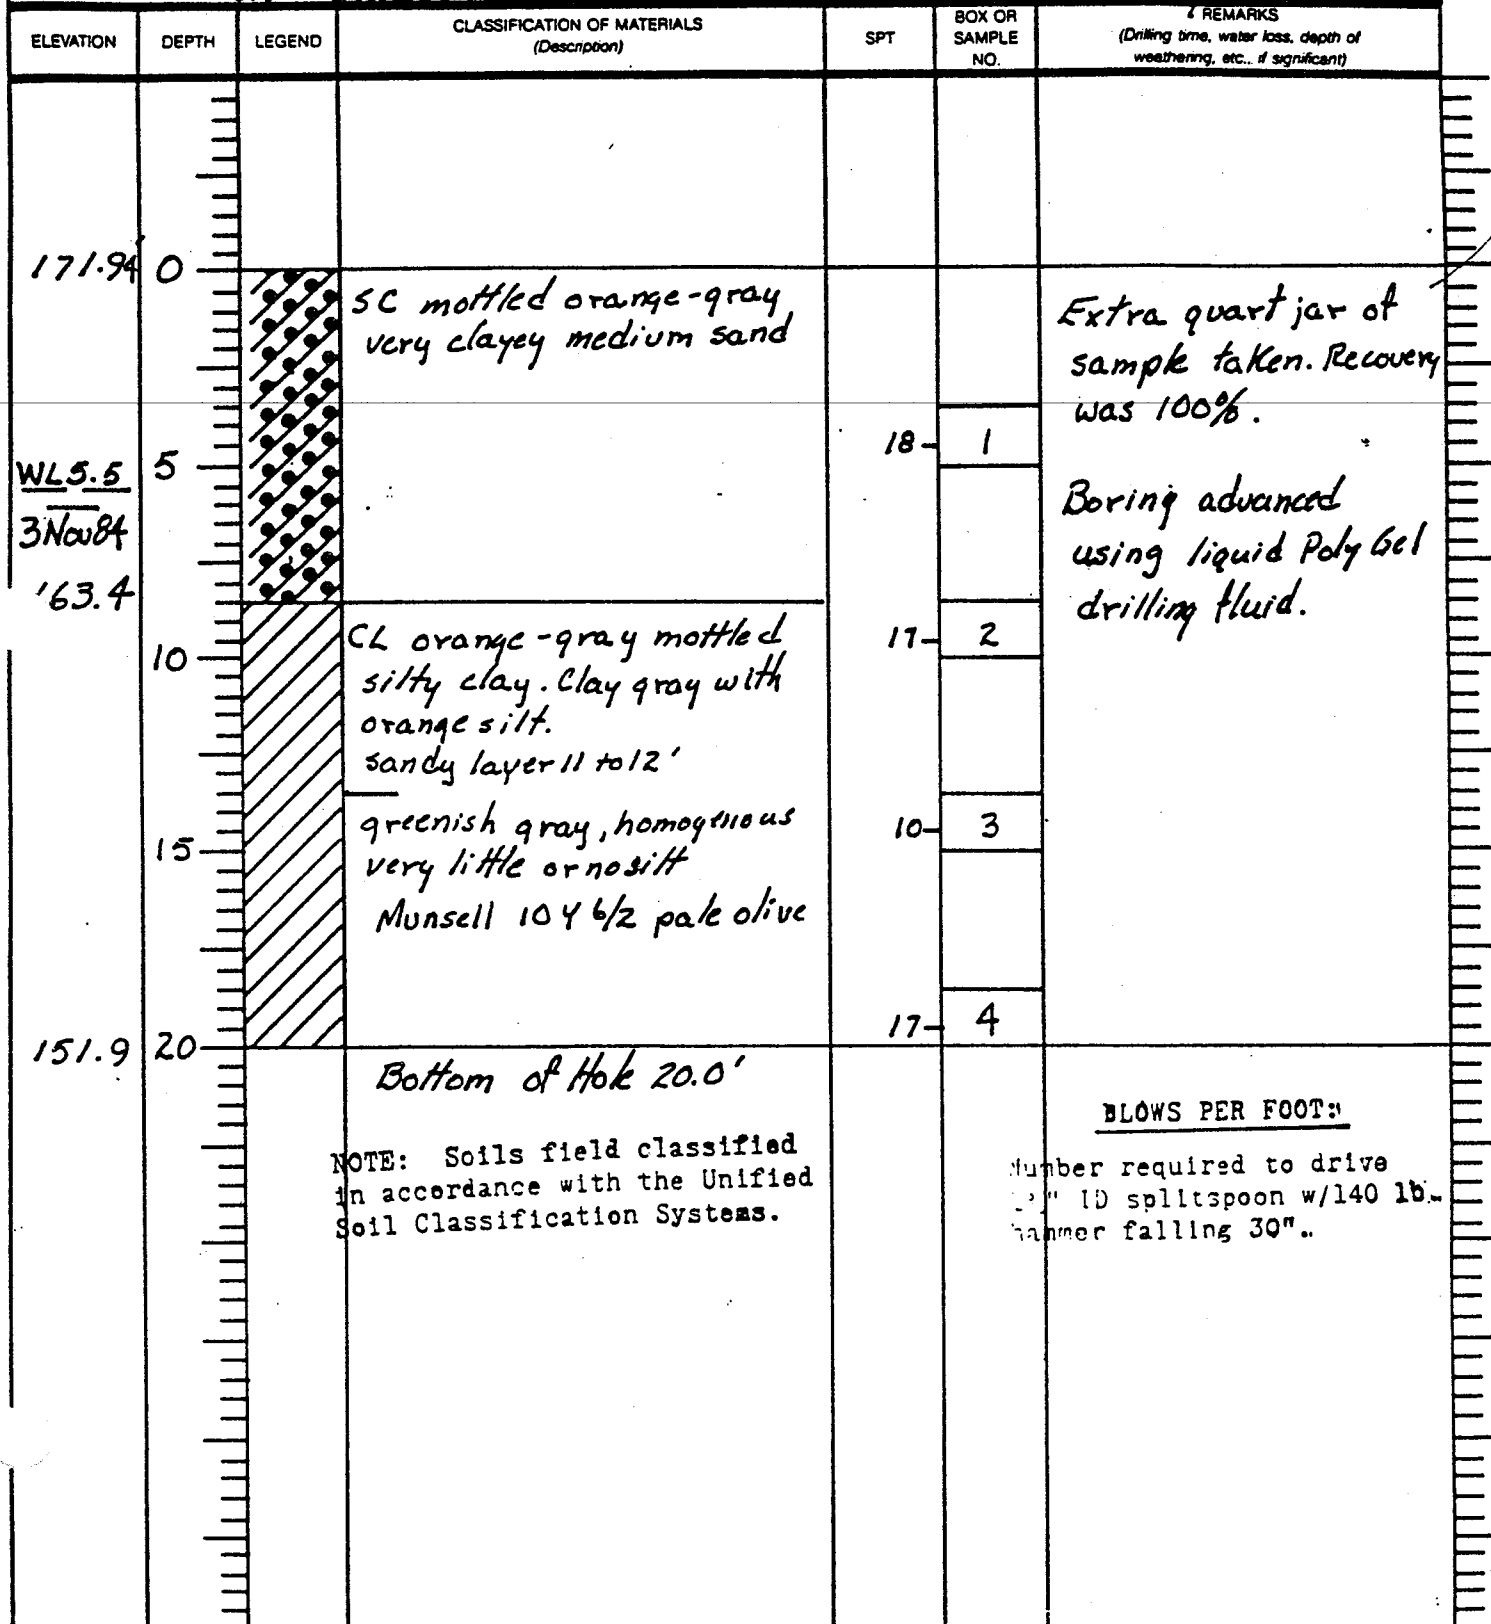 ELEVATION DEPTH LEGEND CLASSIFICATION OF MATERIALS (Description) SPT BOX OR SAMPLE NO. REMARKS
(Drilling time, water loss, depth of
weathering, etc., if significant)
171.94 0
SC mottled orange-gray
very clayey medium sand
Extra quart jar of
sample taken. Recovery
was 100%.
18 1
WL5.5 5
3Nov84
Boring advanced
using liquid Poly Gel
drilling fluid.
'63.4
CL orange-gray mottled
silty clay. Clay gray with
orange silt.
sandy layer 11 to 12'
17 2
10
greenish gray, homogenous
very little or no silt
Munsell 10Y 6/2 pale olive
10 3
15
17 4
151.9 20
Bottom of Hole 20.0'
NOTE: Soils field classified
in accordance with the Unified
Soil Classification Systems.
BLOWS PER FOOT:
Number required to drive
" ID splitspoon w/140 lb.
hammer falling 30".